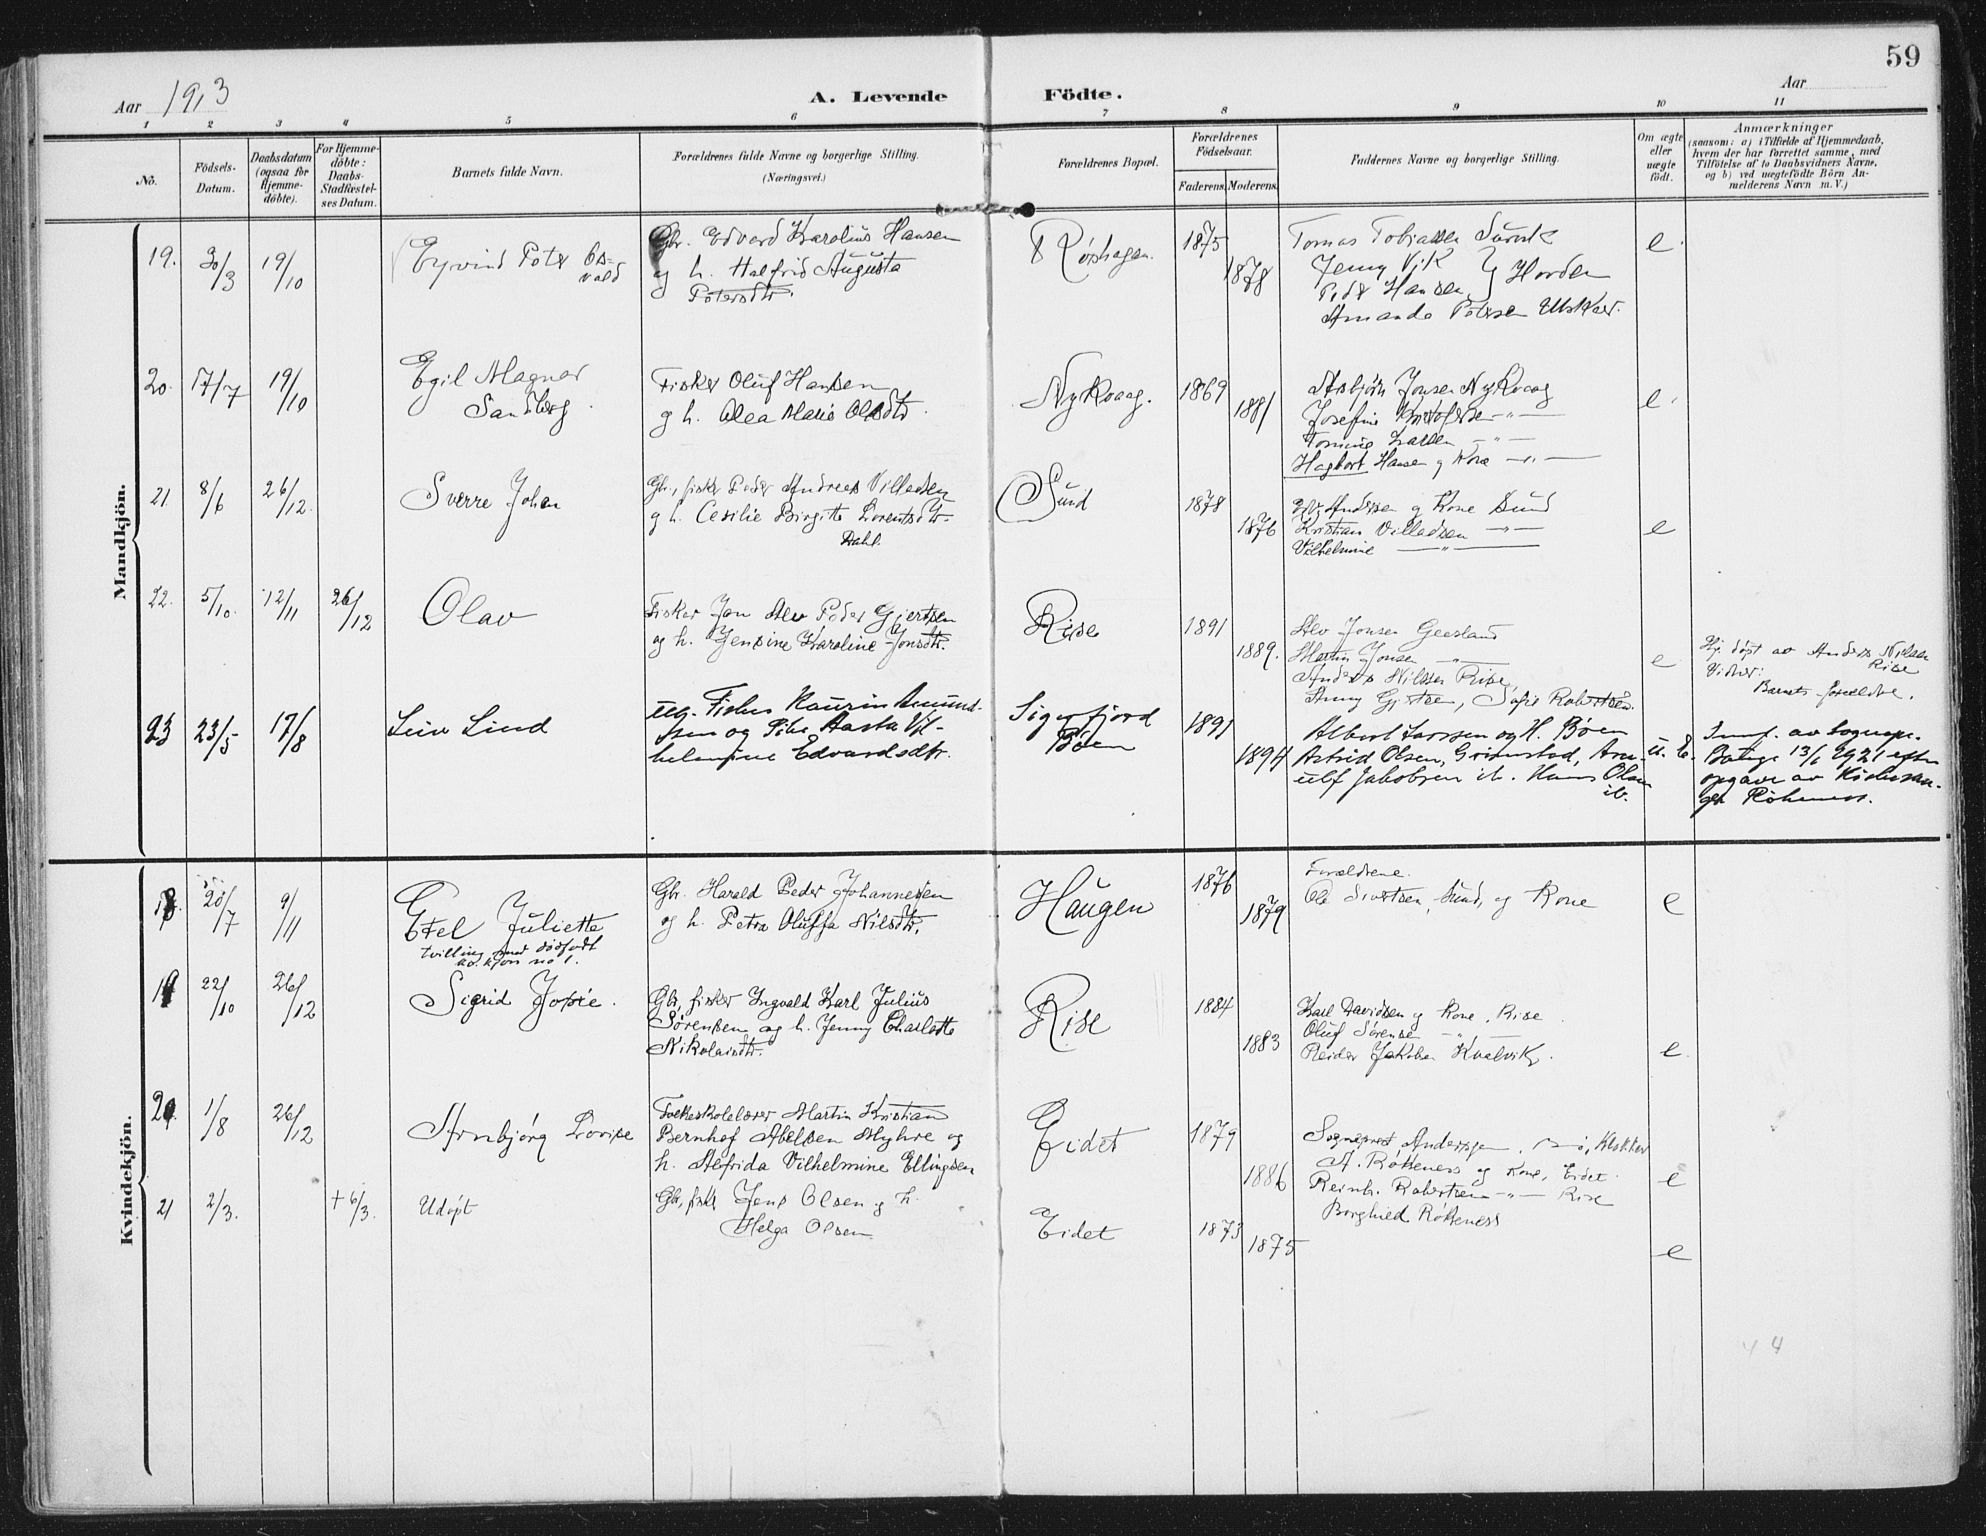 59
Aar 1913 A. Levende Födte. Aar
1 2 3 4 5 6 7 8 9 10 11
No.
Födsels-
Datum.
Daabsdatum
(ogsaa for
Hjemme-
döbte).
For Hjemme-
döbte:
Daabs-
Stadfæstel-
ses Datum.
Barnets fulde Navn.
Forældrenes fulde Navne og borgerlige Stilling.
(Næringsvei.)
Forældrenes Bopæl.
Forældrenes
Födselsaar.
Faderens. Moderens.
Faddernes Navne og borgerlige Stilling.
Om ægte
eller
uægte
födt.
Anmærkninger
(saasom: a) i Tilfælde af Hjemmedaab,
hvem der har forrettet samme, med
Tilföielse af to Daabsvidners Navne,
og b) ved uægtefödte Börn An-
melderens Navn m. V.)
Mandkjön.
19. 30/3 19/10
Eyvind Peter Os=
vald
Gbr. Edvard Karolius Hansen
og h. Halfrid Augusta
Petersdtr.
Rørshagen. 1875
1878
Tomas Tobiassen
Jenny Vik
Peder Hansen
Amanda Petersen
e
20. 17/7 19/10
Egil Magnar
Sandberg
Fisker Oluf Hansen
og h. Alea Marie Olsdtr.
Nykvaag. 1869
1881
Asbjørn Jonsen Nykvaag
Josefine Kristofersen -"-
Larsen -"-
Hagbart Hansen og Kone -"-
e
21 8/6 26/12.
Sverre Johan
Gbr., fisker Peder Andreas Villadsen
og h. Cesilie Birgitte Lorentsdtr.
Dahl.
Sund
1878
1876
Andersen og Kone Sund
Kristian Villadsen -"-
Vilhelmine -"-
e
22. 5/10. 12/11 26/12
Olav
Fisker Jan Alev Peder Gjertsen
og h. Jensine Karoline Jonsdtr.
Rise
1891
1889.
Alv Jonsen
Martin Jonsen -"-
Anders Nilssen Rise
Anny Gjertsen, Sofie Robertsen
e
Hj. døpt av Anders Nielsen
Rise
Vidner:
Barnets forældre.
23 23/5 17/8
Leiv Lind
Fisker Kaurin Amund-
sen og Pike Aasta Vil-
helmine Edvardsdtr.
Sigerfjord
Bøen
1891
1894
Albert Larssen og H. Bøen
Astrid Olsen, Grimstad, Arn-
ulf Jakobsen ib. Hans Olsen
ib.
u. e.
Innf. av Sognepr.
13/6 1921 efter
opgave av Kirkesan-
ger Røkenes.
Kvindekjön.
18. 20/7 9/11
Etel Juliette
tvilling med dødfødt
av kjøn no 1.
Gbr. Harald Peder Johannesen
og h. Petra Oluffa Nilsdtr.
Haugen
1876
1879
Forældrene.
Ole Sivertsen, Sund, og Kone
e
19 22/10 26/12
Sigrid Josie.
Gbr, fisker Ingvald Karl Julius
Sørensen og h. Jenny Charlotte
Nikolaisdtr.
Rise
1884
1883
Karl Davidsen og Kone. Rise
Oluf Sørensen -"-
Reidar Jakobsen Kvalvik.
e
20 1/8 26/12
Arnbjørg Lovise
Folkeskolelærer Martin Kristian
Bernhof Abelsen Myhre og
h. Alfrida Vilhelmine Ellingsen
Eidet
1879
1886
Sogneprest Anderssen. Bø, Klokker
A. Røkeness og Kone, Eidet.
Reinh. Robertsen -"- Rise
Borghild Røkeness
e
21 2/3. + 6/3.
Udøpt
Gbr, fisker Jens Olsen og h.
Helga Olsen
Eidet
1873
1875
e
44